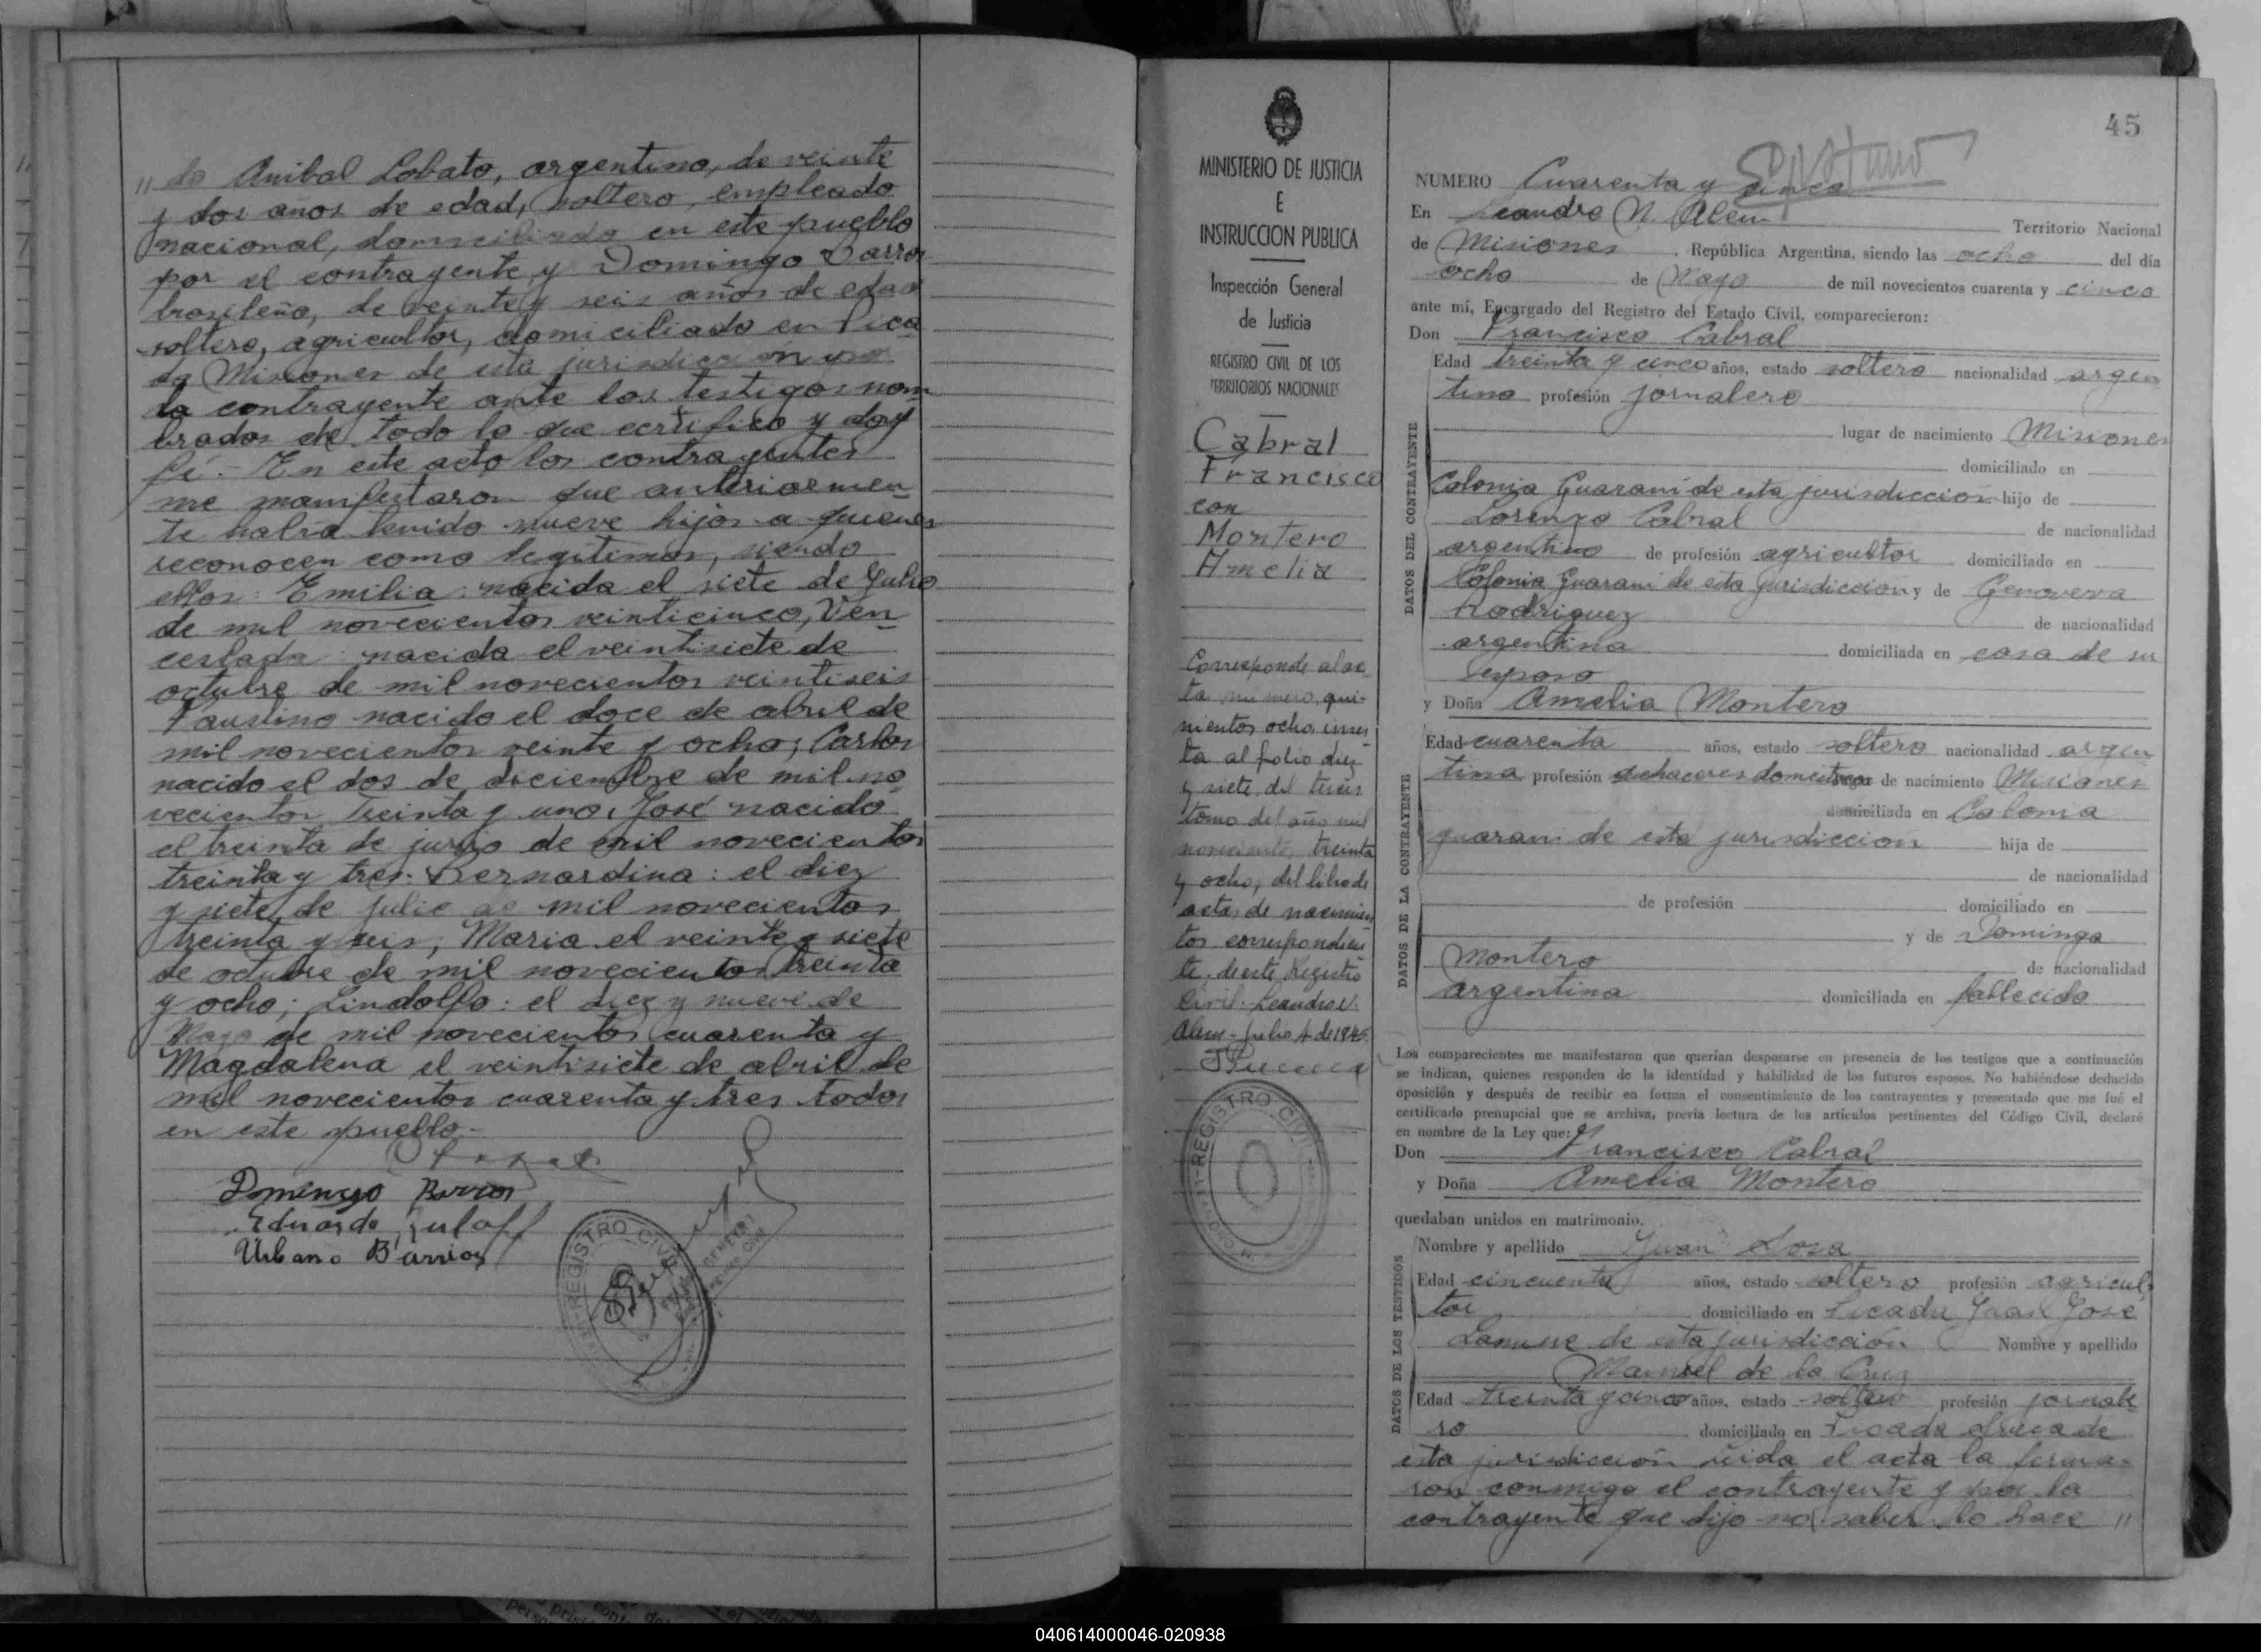 " do Anibal Lobato, argentino, de veinte
y dos años de edad, soltero, empleado
nacional, domiciliado en este pueblo
por el contrayente y Domingo Barros
brasileño, de veinte y seis años de edad
soltero, agricultor, domiciliado en Pica
da Misiones de esta jurisdiccion por
la contrayente ante los testigos nom
brados de todo lo que certifico y doy
fé.- En este acto los contrayentes
me manifestaron que anteriormen
te había tenido nueve hijos a quienes
reconocen como legitimos, siendo
ellos: Emilia: nacida el siete de Julio
de mil novecientos veinticinco, Ven
ceslada: nacida el veintisiete de
octubre de mil novecientos veintiseis
Faustino nacido el doce de abril de
mil novecientos veinte y ocho; Carlos
nacido el dos de diciembre de mil no
vecientos treinta y uno, José nacido
el treinta de junio de mil novecientos
treinta y tres. Bernardina: el diez
y siete de julio de mil novecientos
treinta y seis, Maria el veinte y siete
de octubre de mil novecientos treinta
y ocho; Lindolfo: el diez y nueve de
Mayo de mil novecientos cuarenta y
Magdalena el veintisiete de abril de
mil novecientos cuarenta y tres todos
en este pueblo.-
Domingo Barros
Eduardo
Urbano Barrios
REGISTRO CIVIL
MINISTERIO DE JUSTICIA
E
INSTRUCCION PUBLICA
Inspección General
de Justicia
REGISTRO CIVIL DE LOS
TERRITORIOS NACIONALES
Cabral
Francisco
con
Montero
Amelia
Corresponde al ac
ta número qui-
nientos ocho inser
ta al folio diez
y siete, del tercer
tomo del año mil
novecientos treinta
y ocho, del libro de
actas de nacimien
tos correspondien
te, de este Registro
Civil. Leandro N.
Alem - Julio 4 de 1945
REGISTRO CIVIL
45
NUMERO Cuarenta y cinco
En Leandro N. Alem Territorio Nacional
de Misiones, República Argentina, siendo las ocho del día
ocho de Mayo de mil novecientos cuarenta y cinco
ante mí, Encargado del Registro del Estado Civil, comparecieron:
Don Francisco Cabral
DATOS DEL CONTRAYENTE
Edad treinta y cinco años, estado soltero nacionalidad argen
tino profesión jornalero
lugar de nacimiento Misiones
domiciliado en
Colonia Guaraní de esta jurisdiccion hijo de
Lorenzo Cabral de nacionalidad
argentino de profesión agricultor domiciliado en
Colonia Guarani de esta jurisdiccion y de Genoveva
Rodriguez de nacionalidad
argentina domiciliada en casa de su
esposo
y Doña Amelia Montero
DATOS DE LA CONTRAYENTE
Edad cuarenta años, estado soltera nacionalidad argen
tina profesión quehaceres domesticos lugar de nacimiento Misiones
domiciliada en Colonia
guarani de esta jurisdiccion hija de
de nacionalidad
de profesión domiciliado en
y de Dominga
Montero de nacionalidad
argentina domiciliada en fallecida
Los comparecientes me manifestaron que querían desposarse en presencia de los testigos que a continuación
se indican, quienes responden de la identidad y habilidad de los futuros esposos. No habiéndose deducido
oposición y después de recibir en forma el consentimiento de los contrayentes y presentado que me fué el
certificado prenupcial que se archiva, previa lectura de los artículos pertinentes del Código Civil, declaré
en nombre de la Ley que:
Don Francisco Cabral
y Doña Amelia Montero
quedaban unidos en matrimonio.
DATOS DE LOS TESTIGOS
Nombre y apellido Juan Sosa
Edad cincuenta años, estado soltero profesión agricul
tor domiciliado en Picada Juan José
de esta jurisdicción Nombre y apellido
Manuel de la Cruz
Edad treinta y cinco años, estado soltero profesión jornale
ro domiciliado en Picada Sueca de
esta jurisdiccion Leida el acta la firma-
ron conmigo el contrayente y por la
contrayente que dijo no saber lo hace "
040614000046-020938